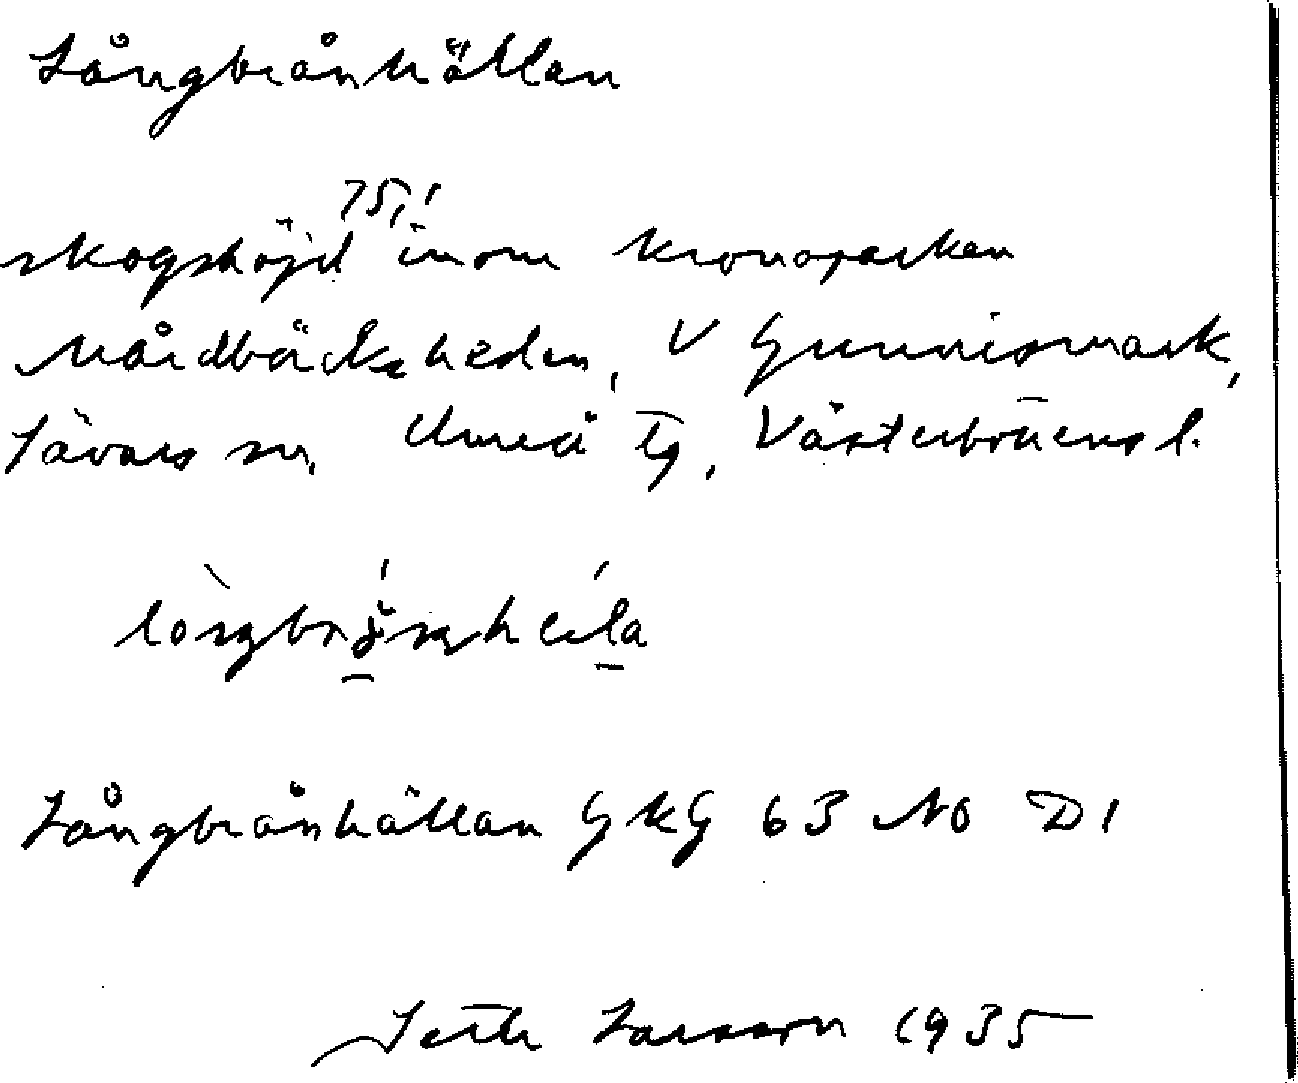 Långbrånhällan
75,1
skogshöjd inom kronoparken
Mårdbäcksheden, V Gunnismark,
Sävars sn, Umeå tg, Västerbottens l.
Långbrånhällan GKG 63 NO D1
Seth Larsson 1935